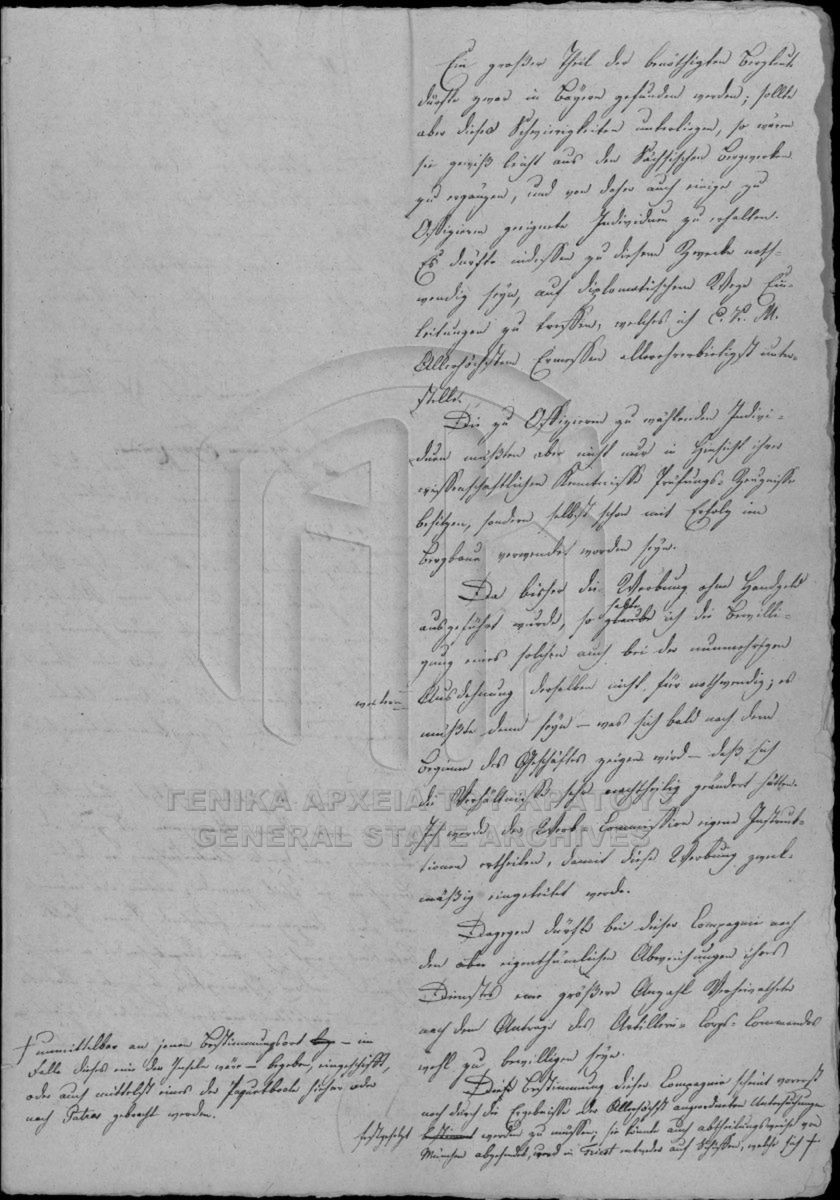 Ein großer Theil der benöthigten Bergleute
dürfte zwar in Bayern gefunden werden; sollte
aber dieses Schwierigkeiten unterliegen, so wären
sie gewiß leicht aus den Sächsischen Bergwerken
zu ergänzen, und von daher auch einige zu
Offizieren geeignete Individuen zu erhalten.
Es dürfte indessen zu diesem Zwecke noth-
wendig seyn, auf diplomatischem Wege Ein-
leitungen zu treffen, welches ich E. K. M.
Allerhöchstem Ermessen allerehrerbietigst unter-
stelle.
Die zu Offizieren zu wählenden Indivi-
duen müßten aber nicht nur in Hinsicht ihrer
wissenschaftlichen Kenntnisse Prüfungs-Zeugnisse
besitzen, sondern selbst schon mit Erfolg im
Bergbaue verwendet worden seyn.
Da bisher die Werbung ohne Handgeld
ausgeführt wurde, so glaube halte ich die Bewilli-
gung eines solchen auch bei der nunmehrigen
weitern Ausdehnung derselben nicht für nothwendig; es
müßte denn seyn – was sich bald nach dem
Beginne des Geschäftes zeigen wird – daß sich
die Verhältnisse sehr nachtheilig geändert hätten.
Ich werde der Werb-Commission eigene Instruk-
tionen ertheilen, damit diese Werbung zweck-
mäßig eingeleitet werde.
Dagegen dürfte bei dieser Compagnie nach
den eigenthümlichen Abweichungen ihres
Dienstes eine größere Anzahl Verheirathete
nach dem Antrage des Artillerie-Corps-Commandos
wohl zu bewilligen seyn.
Die Bestimmung dieser Compagnie scheint vorerst
noch durch die Ergebnisse der Allerhöchst angeordneten Untersuchungen
festgesetzt bestimmt werden zu müssen. sie könnte auch abtheilungsweise von
München abgesendet, und in Triest entweder auf Schiffen, welche sich †
† unmittelbar an jenen Bestimmungsort – im
Falle dieses eine der Inseln wäre – begeben, eingeschifft,
oder auch mittelst eines der Paquetboote hieher oder
nach Patras gebracht werden.
ΓΕΝΙΚΑ ΑΡΧΕΙΑ ΤΟΥ ΚΡΑΤΟΥΣ
GENERAL STATE ARCHIVES